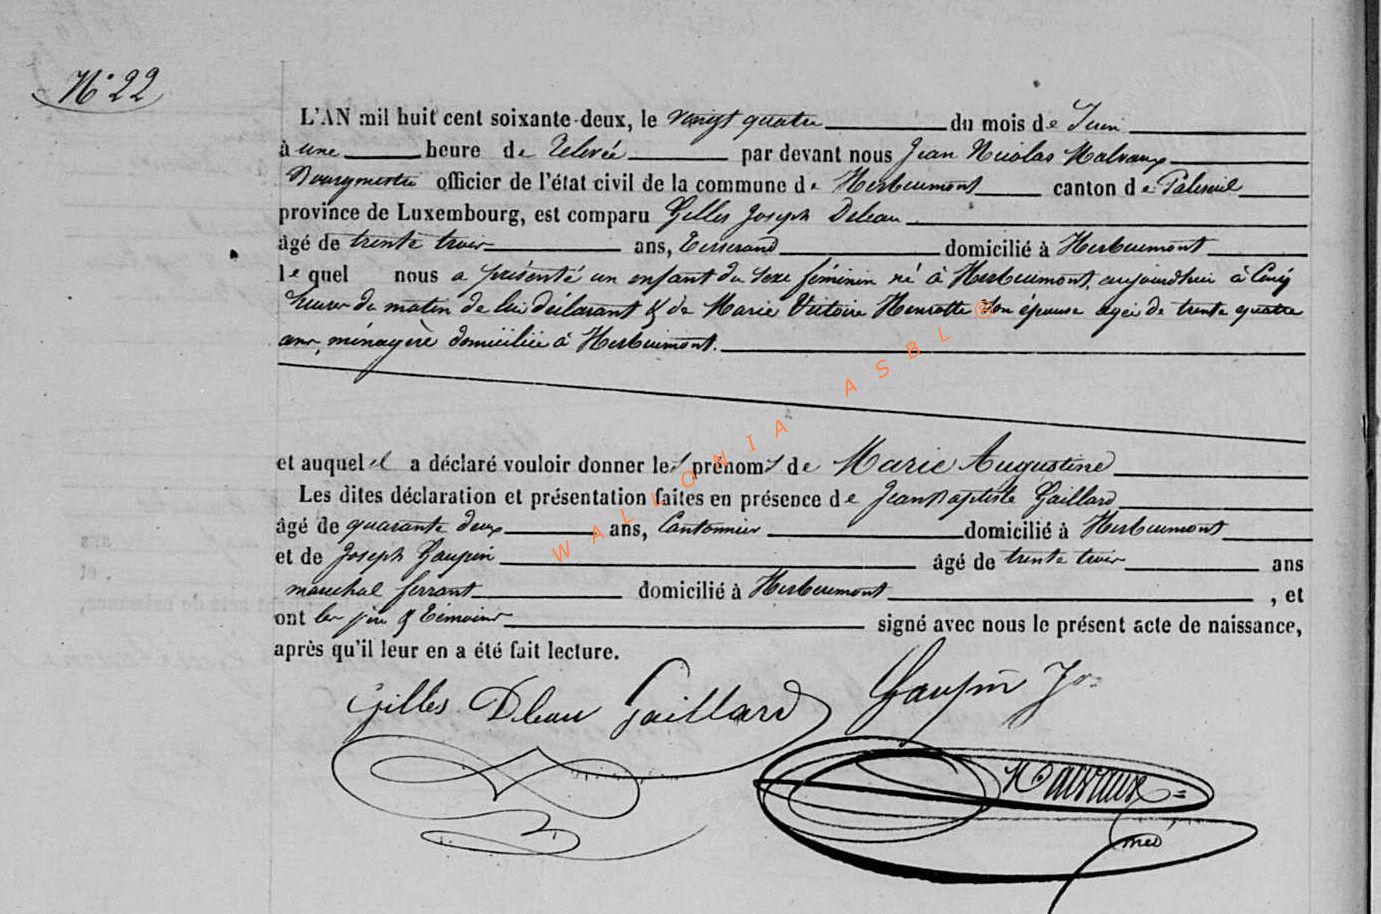 N° 22
L'AN mil huit cent soixante-deux, le vingt quatre du mois de Juin
à une heure de relevée par devant nous Jean Nicolas Malvaux
Bourgmestre officier de l'état civil de la commune de Herbeumont canton de Paliseul
province de Luxembourg, est comparu Gilles Joseph Deleau
âgé de trente trois ans, Tisserand domicilié à Herbeumont
lequel nous a présenté un enfant du sexe féminin né à Herbeumont, aujourdhui à Cinq
heures du matin de lui déclarant & de Marie Victoire Henrotte son épouse agée de trente quatre
ans, ménagère domiciliée à Herbeumont.
et auquel il a déclaré vouloir donner les prénoms de Marie Augustine
Les dites déclaration et présentation faites en présence de Jean Baptiste Gaillard
âgé de quarante deux ans, Cantonnier domicilié à Herbeumont
et de Joseph Gaupin âgé de trente trois ans
maréchal ferrant domicilié à Herbeumont, et
ont les père & Témoins signé avec nous le présent acte de naissance,
après qu'il leur en a été fait lecture.
Gilles Dleau Gaillard Gaupin Jos
Malvaux
WALLONIA ASBL ®